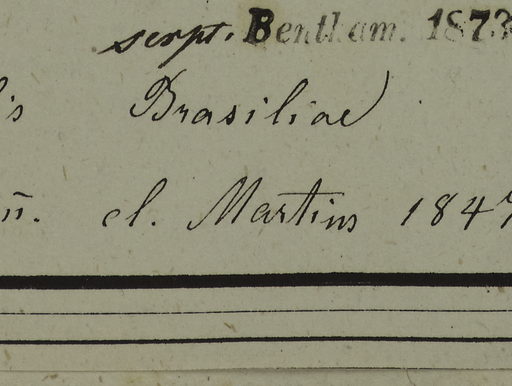 scrpt. Bentham. 1873
is Brasiliae
n̄. cl. Martius 1847